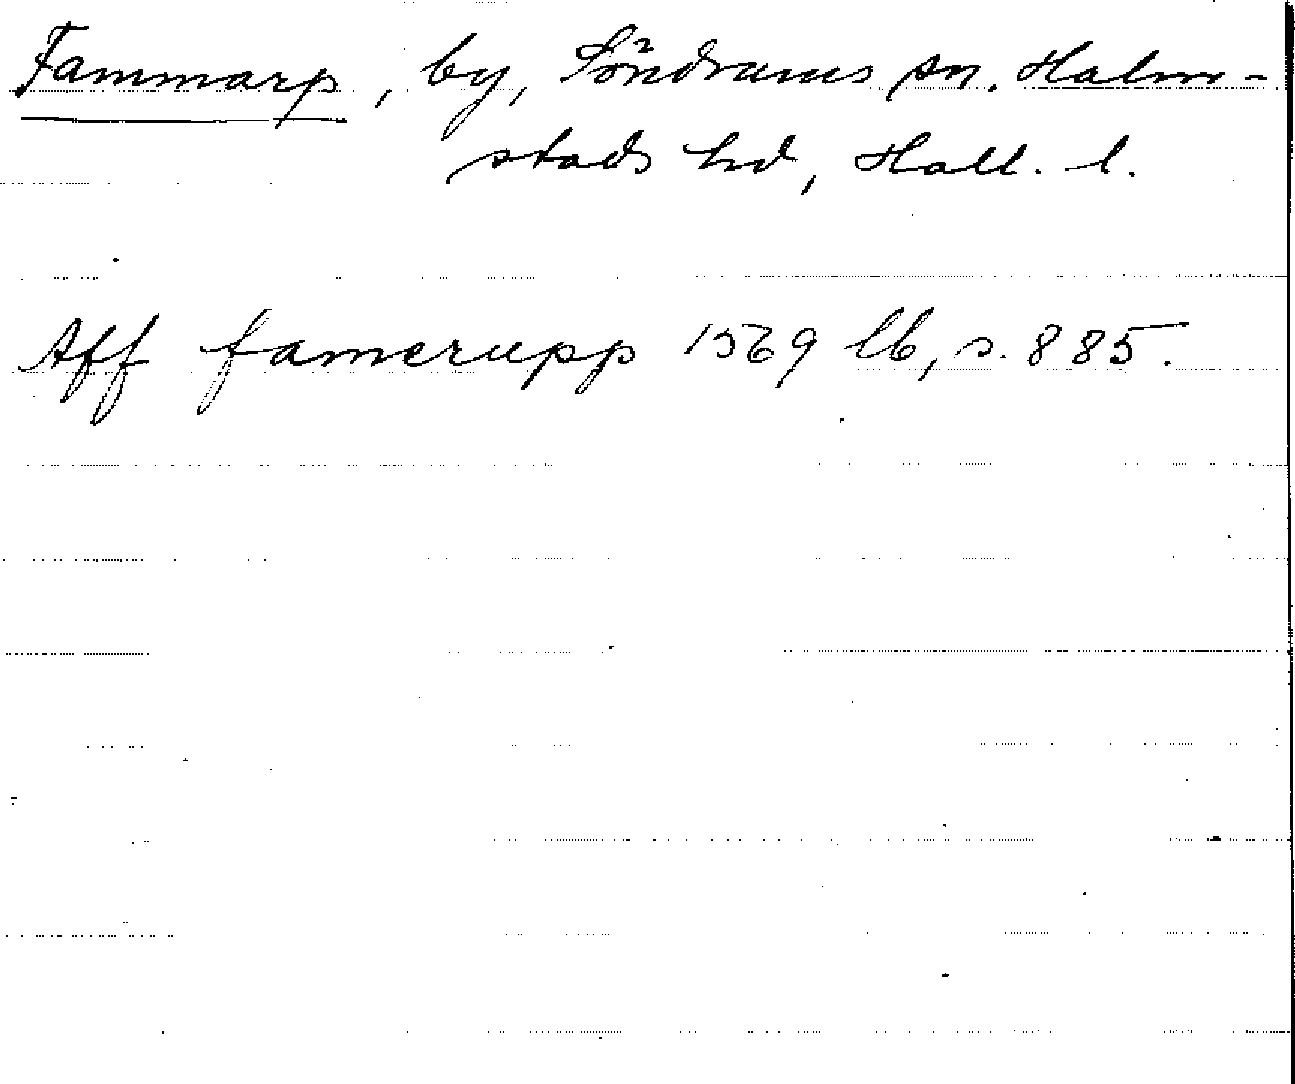 Fammarp, by, Söndrums sn. Halm-
stads hd, Hall. l.
Aff famerupp 1569 lb, s. 885.